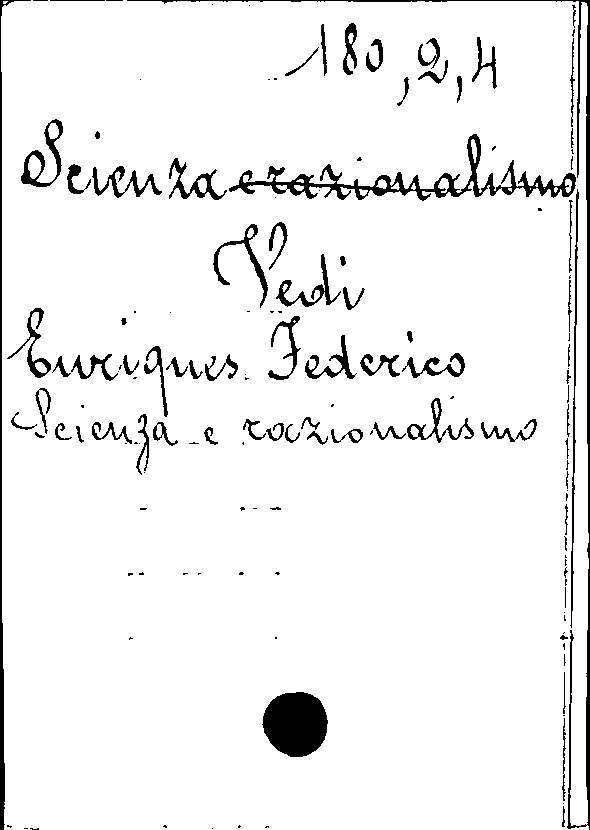 180,2,4
Scienza e razionalismo
Vedi
Enriques Federico
Scienza e razionalismo